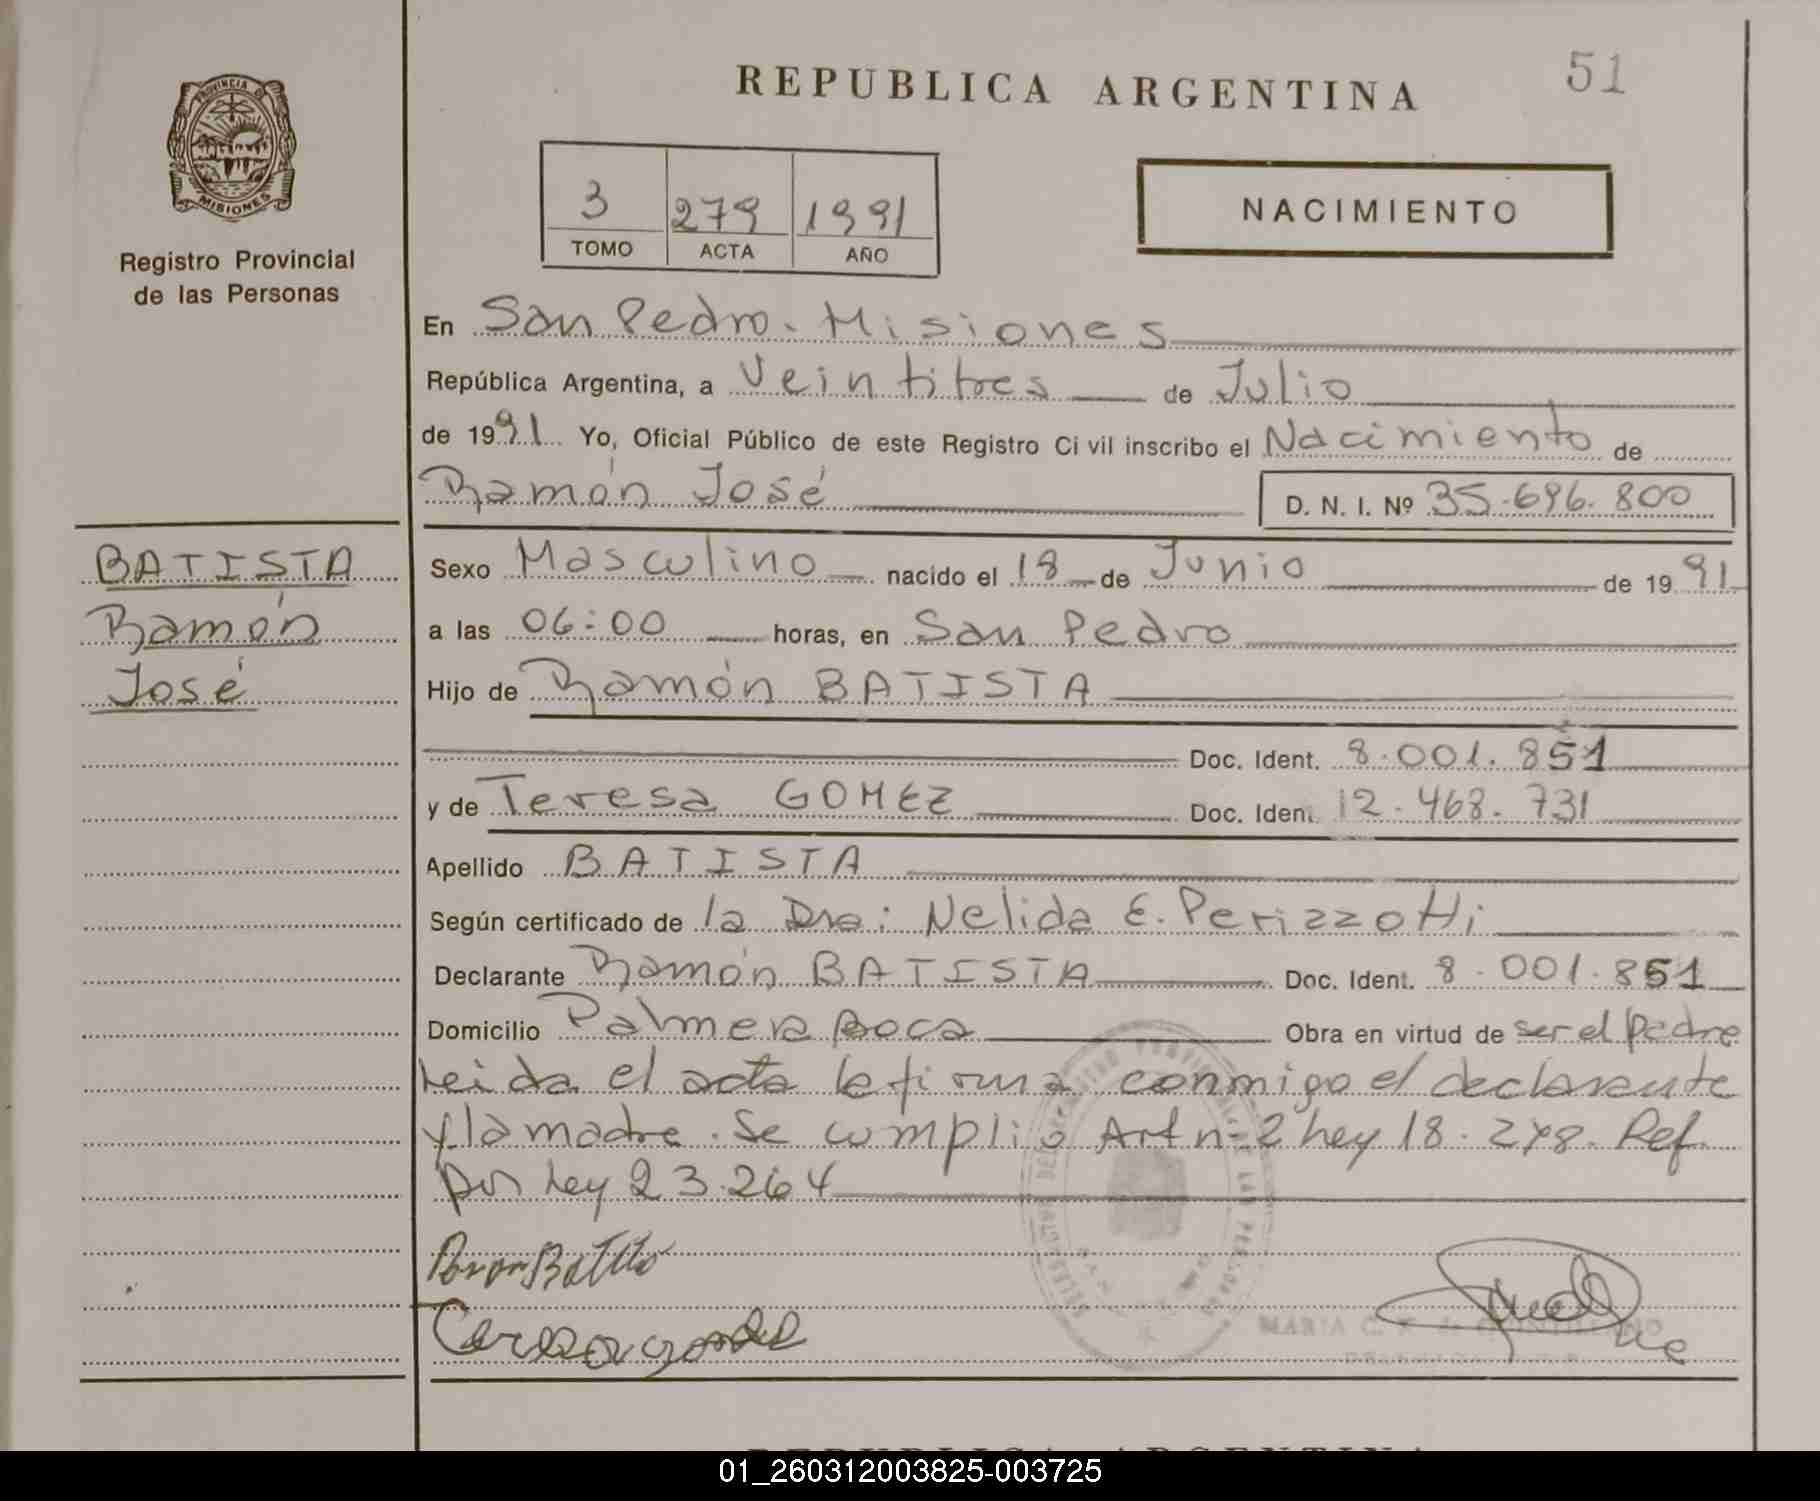 REPUBLICA ARGENTINA
51
PROVINCIA D
MISIONES
Registro Provincial
de las Personas
3 279 1991
TOMO ACTA AÑO
NACIMIENTO
En San Pedro. Misiones
República Argentina, a Veintitres de Julio
de 1991 Yo, Oficial Público de este Registro Civil inscribo el Nacimiento de
Ramón José D. N. I. Nº 35.696.800
BATISTA
Ramón
José
Sexo Masculino nacido el 18 de Junio de 1991
a las 06:00 horas, en San Pedro
Hijo de Ramón BATISTA
Doc. Ident. 8.001.851
y de Teresa GOMEZ Doc. Iden. 12.468.731
Apellido BATISTA
Según certificado de la Dra: Nelida E. Perizzotti
Declarante Ramón BATISTA Doc. Ident. 8.001.851
Domicilio Palmera Boca Obra en virtud de ser el padre
Leida el acta la firma conmigo el declarante
y la madre. Se cumplió Art nº 2 Ley 18.248. Ref.
por Ley 23.264
MARIA C.
REPUBLICA ARGENTINA
01_260312003825-003725